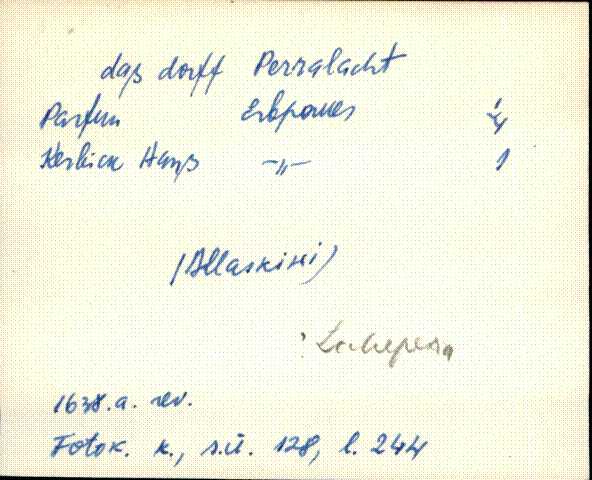 daß dorff Perralacht
Parfun Erbpaues ¼
Kerbick Hanß —"— 1
(Allaskivi)
1638.a. rev.
Fotok. k., s.ü. 128, l. 244